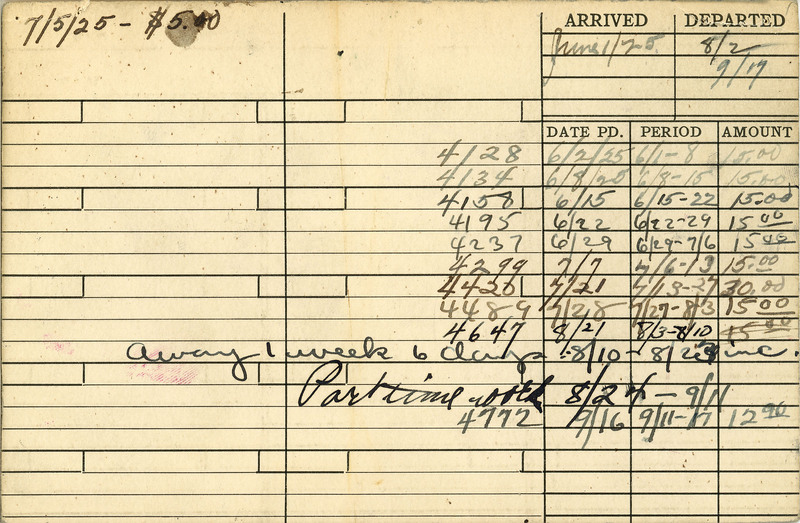 7/5/25 - $5.00
ARRIVED DEPARTED
June 1/25 8/2
9/17
DATE PD. PERIOD AMOUNT
4128 6/2/25 6/1-8 15.00
4134 6/8/25 6/8-15 15.00
4158 6/15 6/15-22 15.00
4195 6/22 6/22-29 15 00
4237 6/29 6/29-7/6 15 00
4299 7/7 7/6-13 15.00
4420 7/21 7/13-27 30.00
4489 7/28 7/27-8/3 15 00
4647 8/21 8/3-8/10 15 00
away 1 week 6 days 8/10 - 8/23 inc.
Part time work 8/24 - 9/11
4772 9/16 9/11-17 12 90